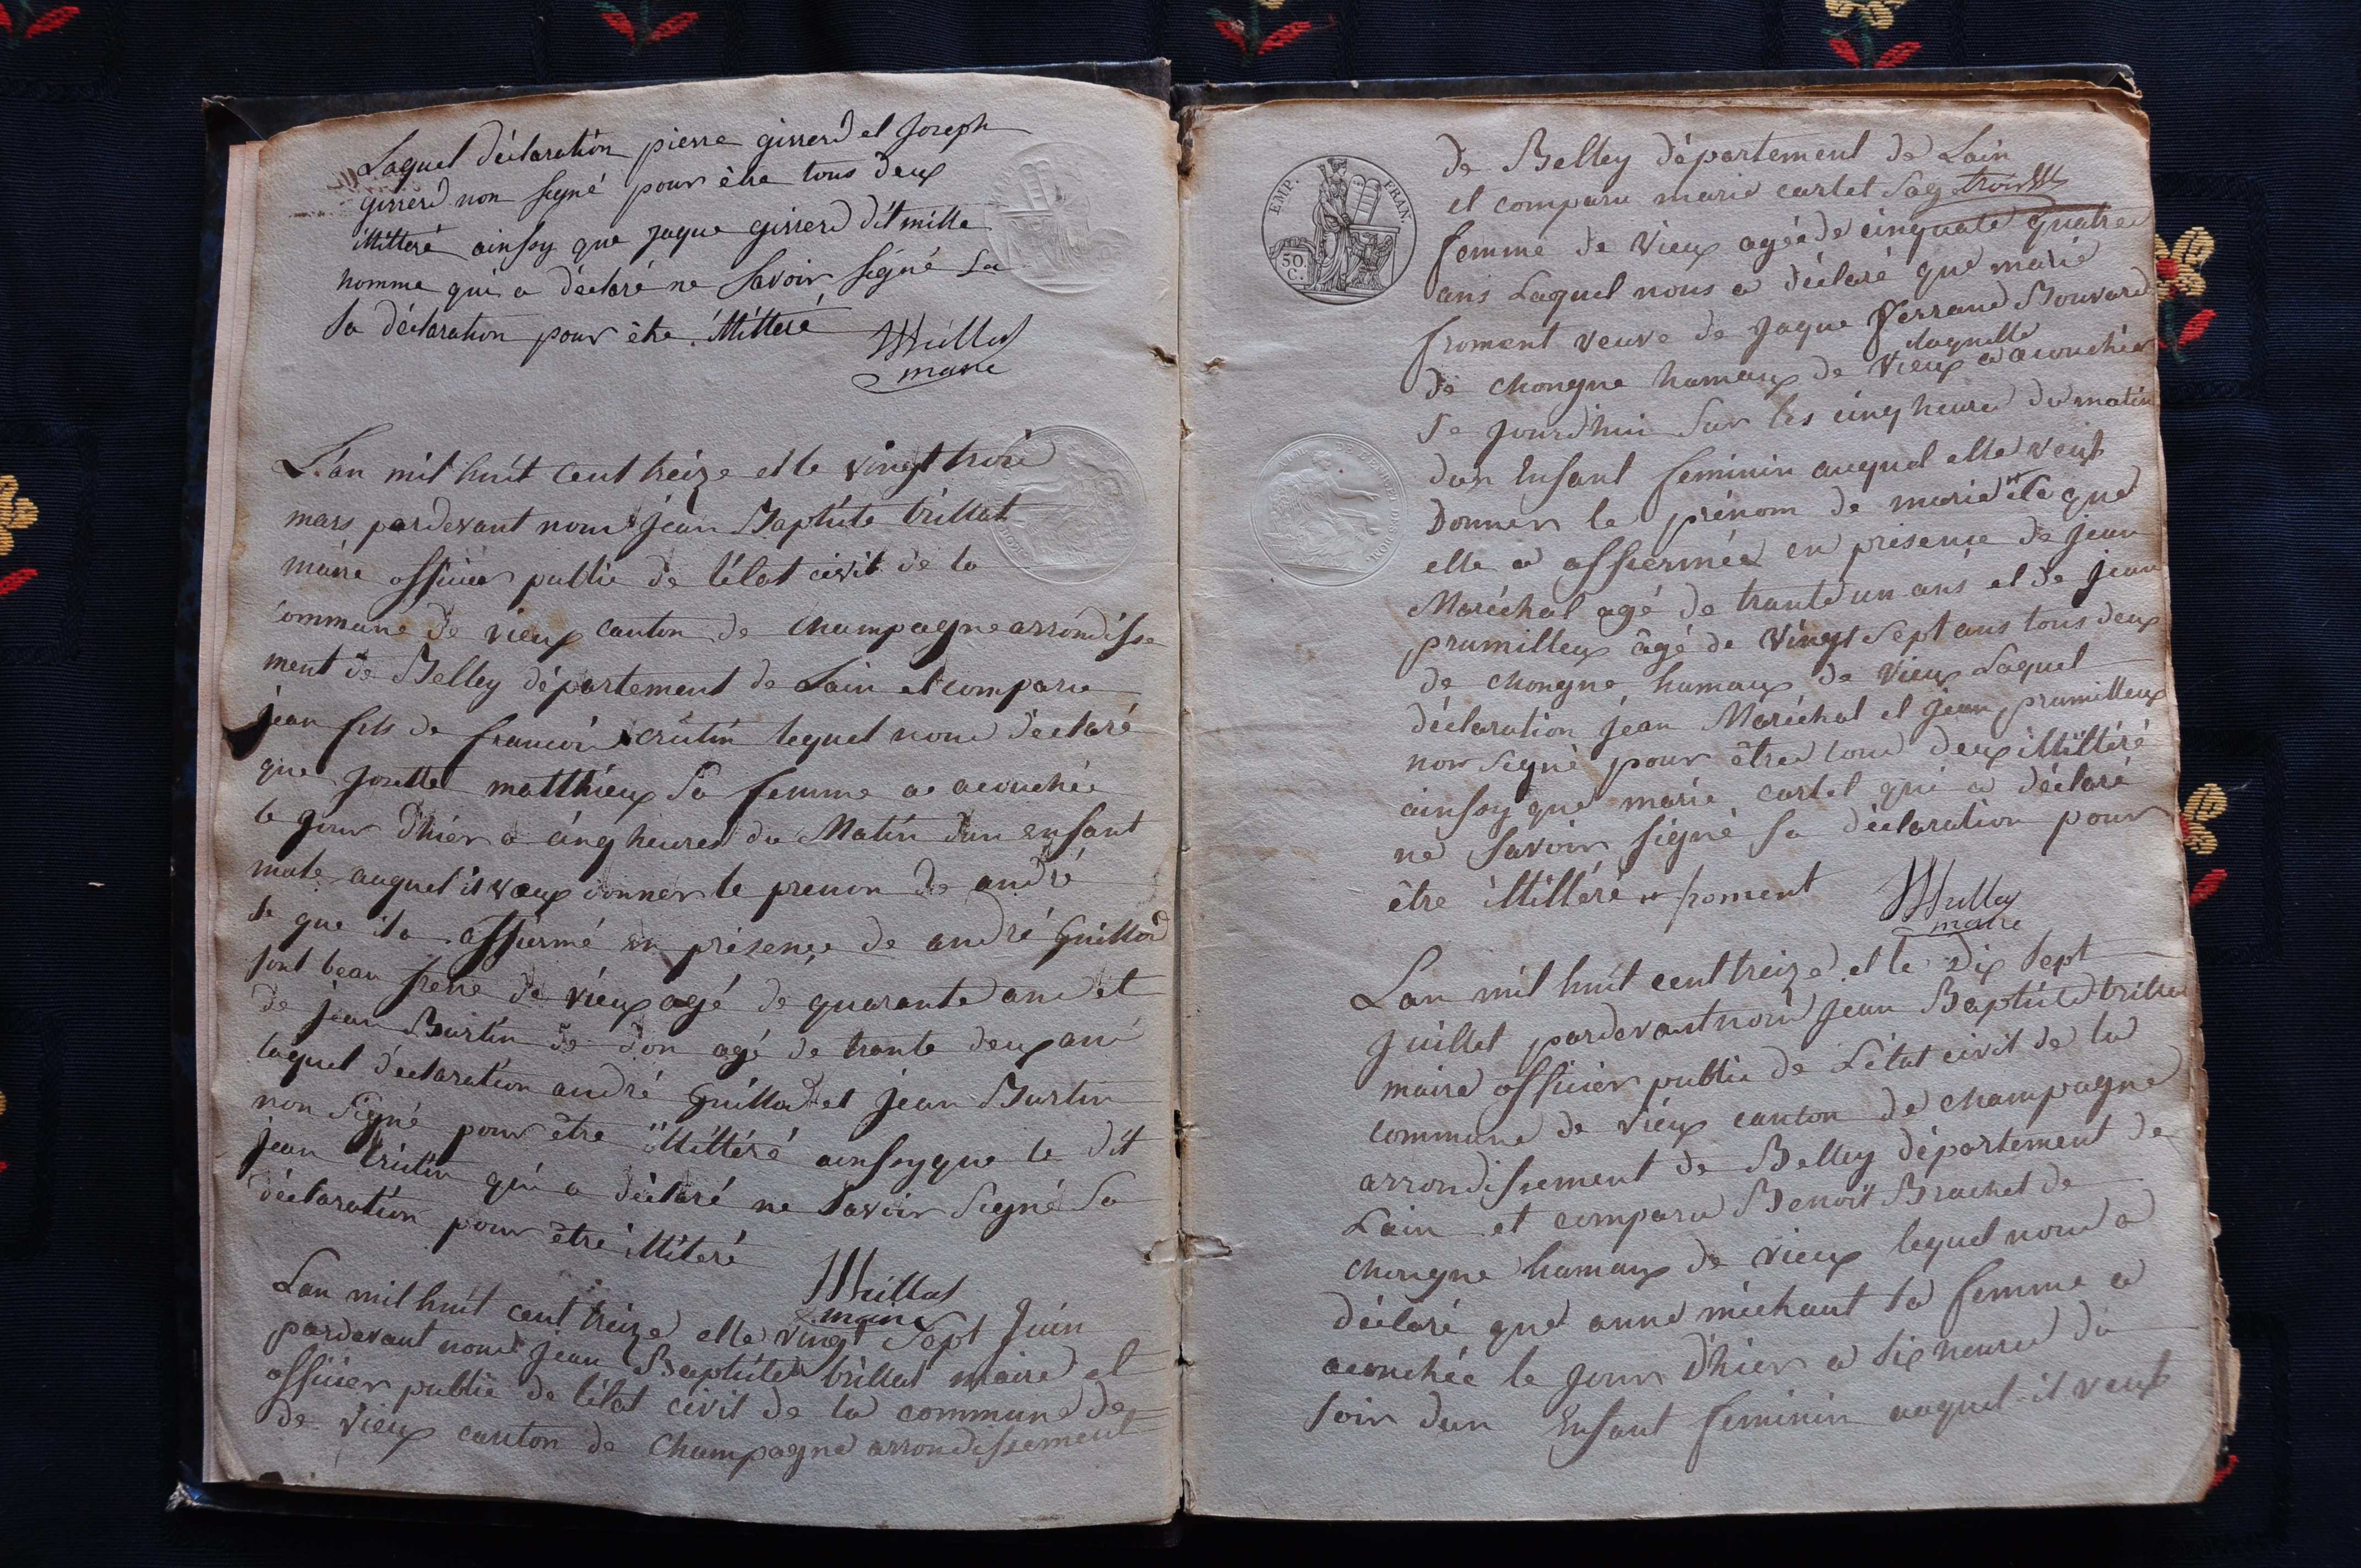 Laquel déclaration pierre girrerd et Joseph
girrerd non signé pour être tous deux
illitteré ainsoy que jaque girrerd dit mille
homme qui a déclaré ne savoir signé sa
sa déclaration pour être illitteré
maire
L'an mil huit cent treize et le vingt trois
mars pardevant nous jean Baptiste trillat
maire officier public de l'état civil de la
commune de vieux canton de champagne arrondisse
ment de Belley département de Lain et comparu
jean fils de francois lequel nous déclaré
que Josette matthieux sa femme a acouchée
le jour d'hier a cinq heures du Matin dun enfant
male auquel il veux donner le prenon de andré
se que il a affiermé en présence de andré Guillod
sont beau frere de vieux agé de quarante ans et
de jean Burtin de don agé de trante deux ans
laquel déclaration andré Guillod et jean Burtin
non signé pour être illitteré ainsoy que le dit
jean qui a déclaré ne savoir signé sa
déclaration pour être illiteré
Trillat
maire
Lan mil huit cent treize et le vingt sept Juin
pardevant nous jean Baptiste trillat maire et
officier public de l'état civil de la commune de
de vieux canton de Champagne arrondissement
EMP. FRAN.
50 C.
de Belley département de Lain
et comparu marie cartet sage
femme de vieux agée de cinquate quatre
ans Laquel nous a déclaré que marie
froment veuve de jaque ferrand Bouvard
de chongne hamaux de vieux laquelle a acouchée
se jourd'hui sur les cinq heures du matin
dun Enfant feminin auquel elle veut
donner le prénom de marie se que
elle a affiermée en présence de jean
Maréchal agé de trante un ans et de jean
prumilleux âgé de vingt sept ans tous deux
de chongne hamaux de vieux Laquel
déclaration jean Maréchal et jean prumilleux
non signé pour être tous deux illitteré
ainsoy que marie cartet qui a déclaré
ne savoir signé sa déclaration pour
être illitteré froment
maire
Lan mil huit cent treize et le dix sept
juillet pardevant nous jean Baptiste trillat
maire officier public de L'état civil de la
commune de vieux canton de champagne
arrondissement de Belley département de
Lain et comparu Benoit Brachet de
chongne hamaux de vieux lequel nous a
déclaré que anne michaut sa femme a
acouchée le jour d'hier a six heures du
soir dun Enfant feminin auquel il veux